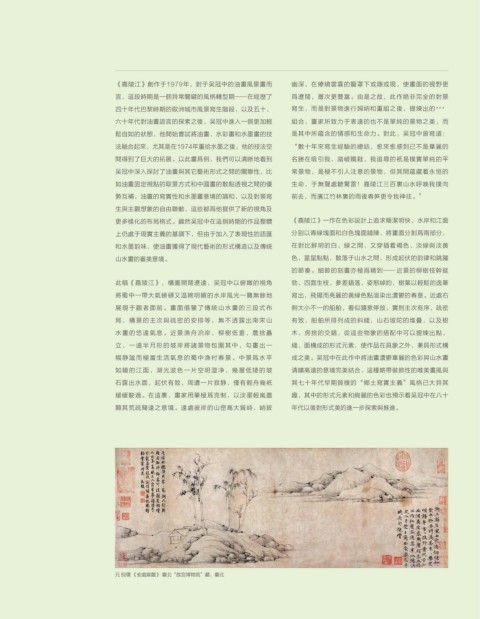 《嘉陵江》創作于1979年，對于吳冠中的油畫風景畫而
言，這段時期是一個非常關鍵的風格轉型期——在經歷了
四十年代巴黎時期的歐洲城市風景寫生階段，以及五十、
六十年代對油畫語言的探索之後，吳冠中進入一個更加輕
鬆自如的狀態，他開始嘗試將油畫、水彩畫和水墨畫的技
法融合起來，尤其是在1974年重拾水墨之後，他的技法空
間得到了巨大的拓展。以此畫爲例，我們可以清晰地看到
吳冠中深入探討了油畫與其它藝術形式之間的關聯性，比
如油畫固定視點的取景方式和中國畫的散點透視之間的優
勢互補，油畫的寫實性和水墨畫意境的調和，以及對景寫
生與主觀想象的自由聯動，這些都爲他提供了新的視角及
更多樣化的布局格式。雖然吳冠中在這個時期的作品整體
上仍處于現實主義的基調下，但由于加入了表現性的語匯
和水墨韵味，便油畫獲得了現代藝術的形式構造以及傳統
山水畫的審美意境。
此幅《嘉陵江》，構圖開闊遼遠，吳冠中以俯瞰的視角
將蜀中一帶大氣磅礴又溫婉明媚的水岸風光一覽無餘地
展現于觀者面前。畫面借鑒了傳統山水畫的三段式布
局，構景的主次與疏密的安得等，無不透露出南宋山
水畫的悠遠氣息。近景漁舟沿岸，柳樹低垂，農捨矗
立，一道半月形的堤岸將諸景物包圍其中，勾畫出一
幅静謐而極富生活氣息的蜀中漁村春景。中景爲水平
如鏡的江面，湖光波色一片空明澄净，幾層低矮的坡
石露出水面，起伏有致，周遭一片寂静，僅有輕舟幾衹
緩緩駛過。在這裏，畫家用筆極爲克制，以淡墨輕嵐盡
顯其荒疏簡遠之意境。遠處彼岸的山巒高大聳峙，峭拔
幽深，在繚繞雲靄的籠罩下或隱或現，使畫面的視野更
爲遼闊，層次更豐富。由是之故，此作絕非完全的對景
寫生，而是對景物進行歸納和重組之後，提煉出的
組合，畫家所致力于表達的也不是單純的景物之美，而
是其中所蘊含的情感和生命力。對此，吳冠中曾寫道：
“數十年來寫生經驗的總結，愈來愈感到已不是華麗的
名勝在吸引我，踏破鐵鞋，我追尋的衹是樸實單純的平
常景物，是極不引人注意的景物，但其間蘊藏着永恒的
生命，于無聲處聽驚雷！嘉陵江三百裏山水呼喚我撲向
前去，而漓江竹林裏的雨後春笋更令我神往。”
《嘉陵江》一作在色彩設計上追求簡潔明快，水岸和江面
分别以青緑塊面和白色塊面鋪陳，將畫面分割爲兩部分，
在對比鮮明的白、緑之間，又穿插着褐色、淡緑與淡黄
色，星星點點，散落于山水之間，形成起伏的韵律和跳躍
的節奏。細節的刻畫亦極爲精到——近景的柳樹枝幹挺
致，四面生枝，參差錯落，姿態綽約，樹葉以輕鬆的逸筆
寫出，飛揚而亮麗的黄緑色點渲染出濃鬱的春意。近處右
側大小不一的船舶，看似隨意停放，實則主次有序，疏密
有致，船舶所排列成的斜綫，山石坡陀的塊叠，以及樹
木、房捨的交錯，從這些物象的搭配中可以提煉出點、
綫、面構成的形式元素，使作品在具象之外，兼具形式構
成之美。吳冠中在此作中將油畫濃鬱華麗的色彩與山水畫
清曠高遠的意境完美結合，這種略帶裝飾性的唯美畫風與
其七十年代早期質樸的“鄉土寫實主義”風格已大异其
趣，其中的形式元素和絢麗的色彩也預示着吳冠中在八十
年代以後對形式美的進一步探索與發進。